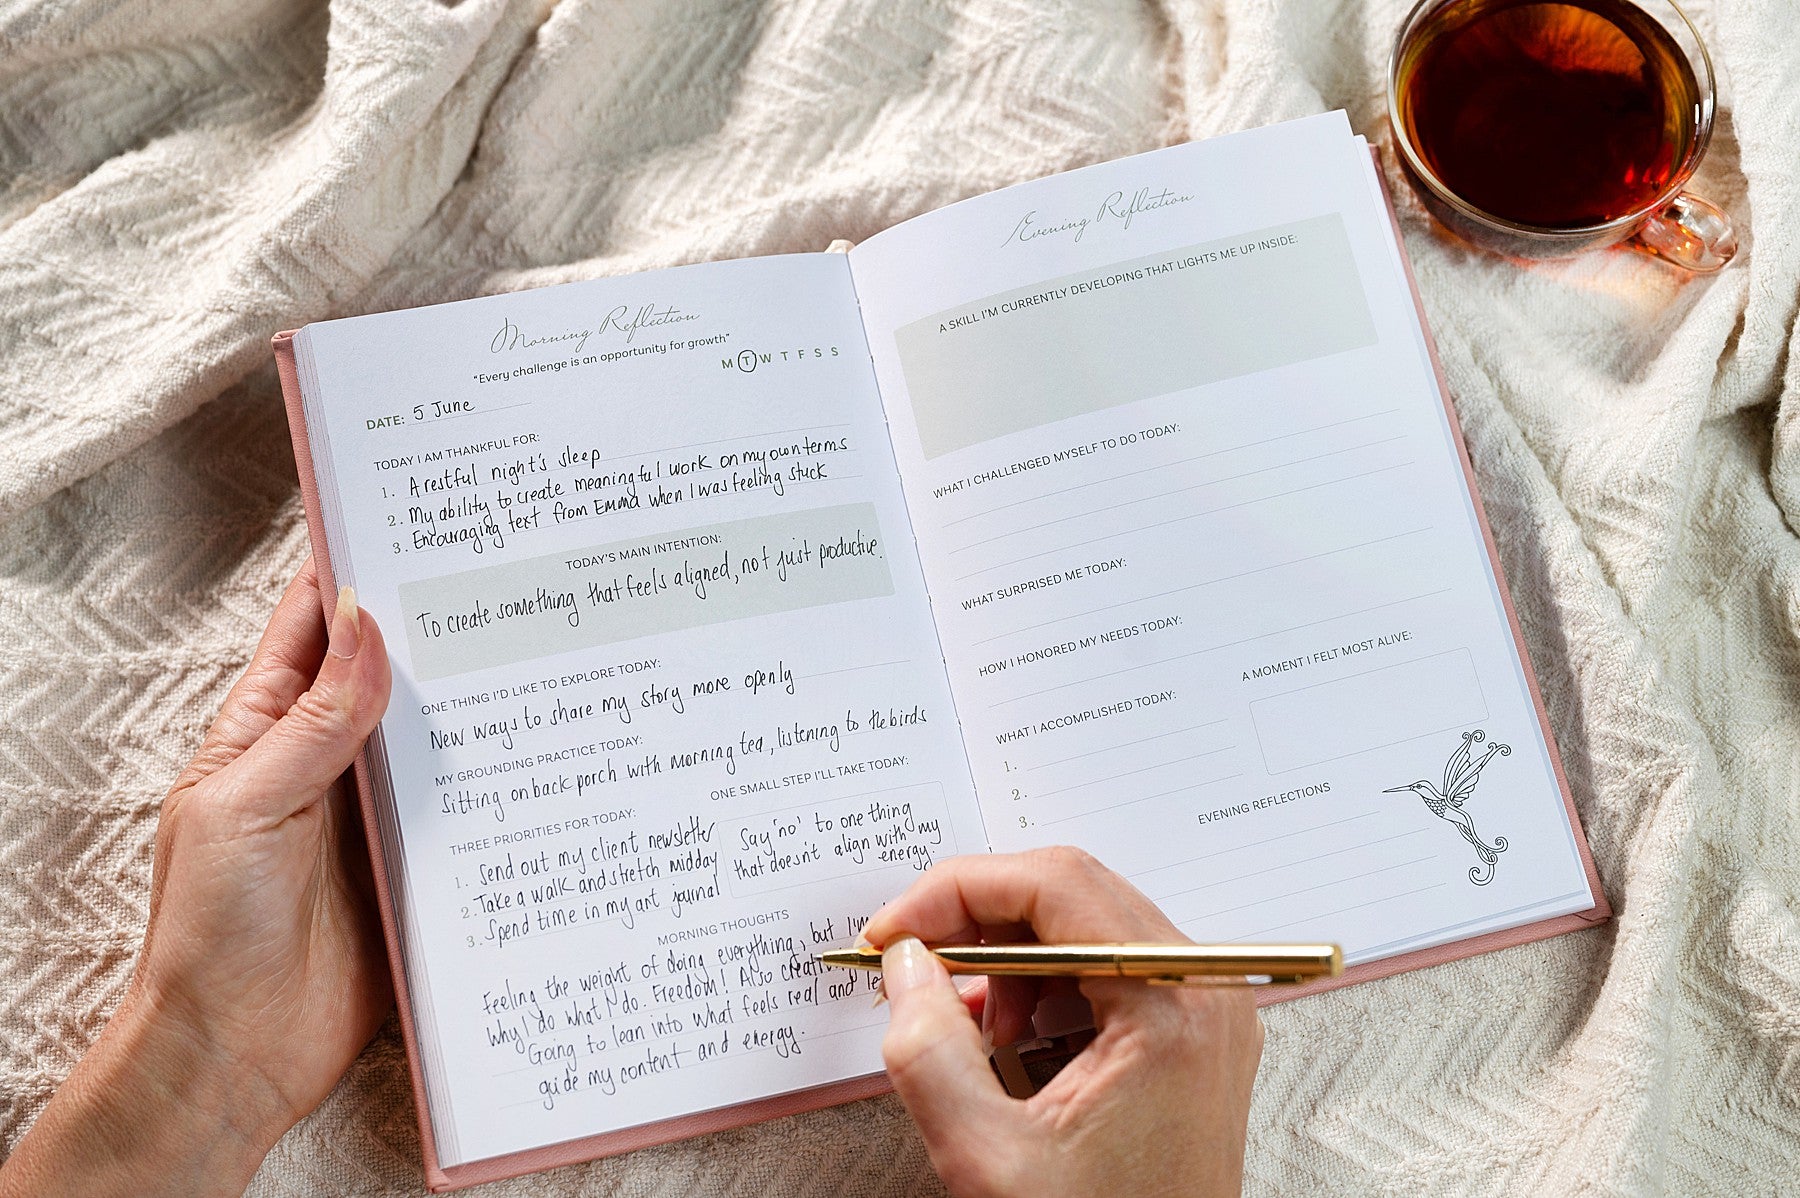 Morning Reflection
"Every challenge is an opportunity for growth"
M T W T F S S
DATE: 5 June
TODAY I AM THANKFUL FOR:
1. A restful night's sleep
2. My ability to create meaningful work on my own terms
3. Encouraging text from Emma when I was feeling stuck
TODAY'S MAIN INTENTION:
To create something that feels aligned, not just productive.
ONE THING I'D LIKE TO EXPLORE TODAY:
New ways to share my story more openly
MY GROUNDING PRACTICE TODAY:
Sitting on back porch with morning tea, listening to the birds
THREE PRIORITIES FOR TODAY:
1. Send out my client newsletter
2. Take a walk and stretch midday
3. Spend time in my art journal
ONE SMALL STEP I'LL TAKE TODAY:
Say 'no' to one thing
that doesn't align with my
energy.
MORNING THOUGHTS
Feeling the weight of doing everything, but
why I do what I do. Freedom! Also
Going to lean into what feels real and
guide my content and energy.
Evening Reflection
A SKILL I'M CURRENTLY DEVELOPING THAT LIGHTS ME UP INSIDE:
WHAT I CHALLENGED MYSELF TO DO TODAY:
WHAT SURPRISED ME TODAY:
HOW I HONORED MY NEEDS TODAY:
WHAT I ACCOMPLISHED TODAY:
1.
2.
3.
A MOMENT I FELT MOST ALIVE:
EVENING REFLECTIONS